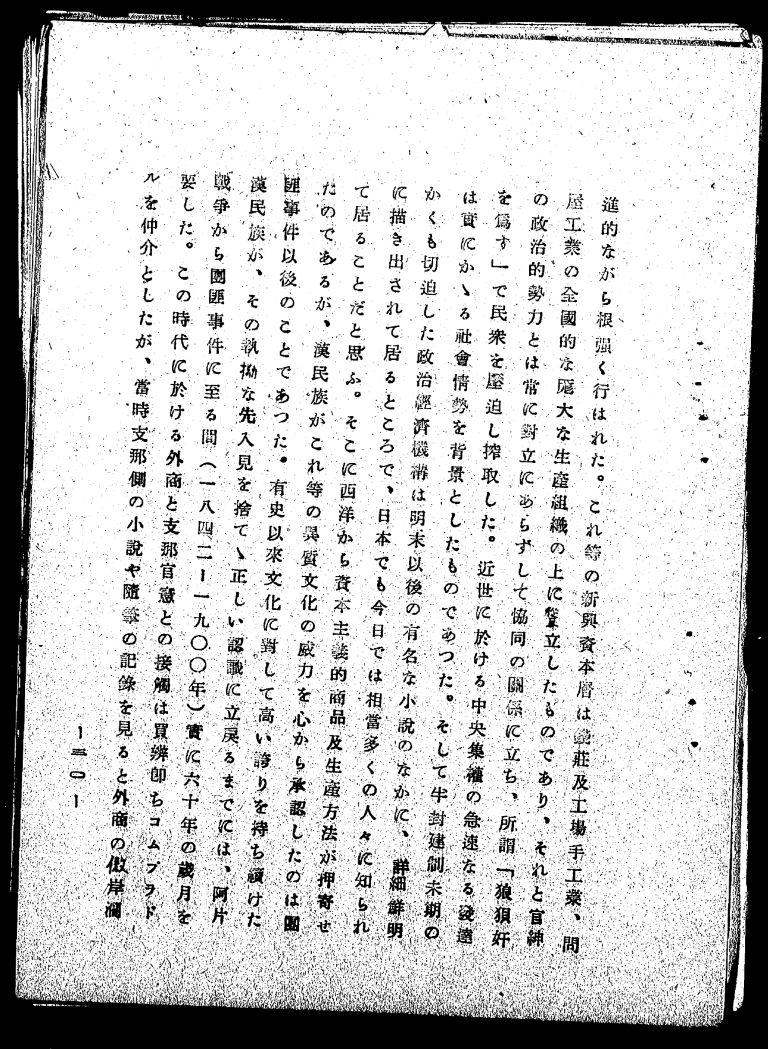 進的ながら根强く行はれた。これ等の新興資本層は錢莊及工場手工業、問
屋工業の全國的な厖大な生產組織の上に聳立したものであり、それと官紳
の政治的勢力とは常に對立にあらずして協同の關係に立ち、所謂「狼狽奸
を爲す」で民衆を壓迫し搾取した。近世に於ける中央集權の急速なる發達
は實にかゝる社會情勢を背景としたものであつた。そして半封建制末期の
かくも切迫した政治經濟機構は明末以後の有名な小說のなかに、詳細鮮明
に描き出されて居るところで、日本でも今日では相當多くの人々に知られ
て居ることだと思ふ。そこに西洋から資本主義的商品及生產方法が押寄せ
たのであるが、漢民族がこれ等の異質文化の威力を心から承認したのは團
匪事件以後のことであつた。有史以來文化に對して高い誇りを持ち續けた
漢民族が、その執拗な先入見を捨てゝ正しい認識に立戾るまでには、阿片
戰爭から團匪事件に至る間（一八四二ー一九〇〇年）實に六十年の歲月を
要した。この時代に於ける外商と支那官憲との接觸は買辨卽ちコムプラド
ルを仲介としたが、當時支那側の小說や隨筆の記錄を見ると外商の傲岸
ー三〇ー